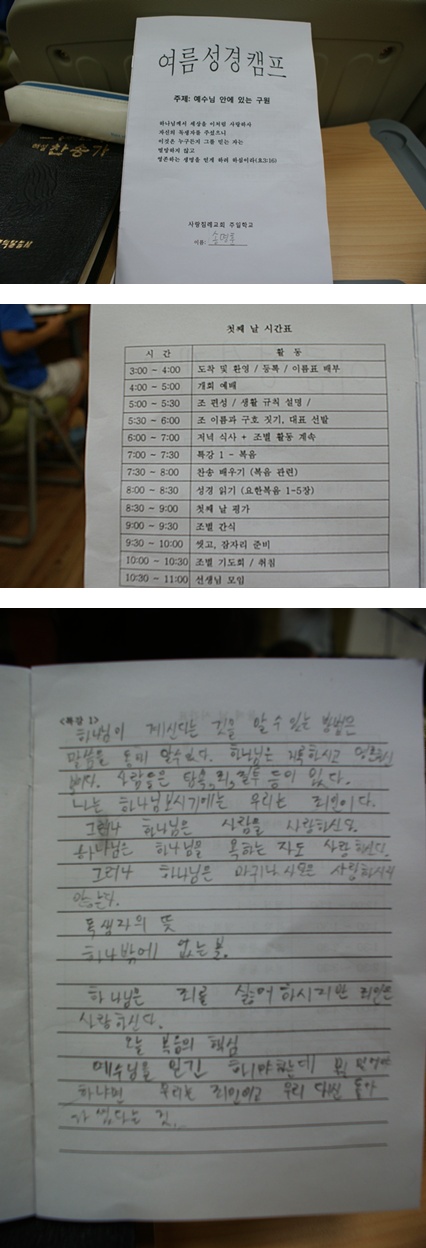 찬송가
여름성경캠프
주제: 예수님 안에 있는 구원
하나님께서 세상을 이처럼 사랑하사
자신의 독생자를 주셨으니
이것은 누구든지 그를 믿는 자는
멸망하지 않고
영존하는 생명을 얻게 하려 하심이라(요3:16)
사랑침례교회 주일학교
이름:
첫째 날 시간표
시 간 활 동
3:00 ~ 4:00 도착 및 환영 / 등록 / 이름표 배부
4:00 ~ 5:00 개회 예배
5:00 ~ 5:30 조 편성 / 생활 규칙 설명 /
5:30 ~ 6:00 조 이름과 구호 짓기, 대표 선발
6:00 ~ 7:00 저녁 식사 + 조별 활동 계속
7:00 ~ 7:30 특강 1 - 복음
7:30 ~ 8:00 찬송 배우기 (복음 관련)
8:00 ~ 8:30 성경 읽기 (요한복음 1-5장)
8:30 ~ 9:00 첫째 날 평가
9:00 ~ 9:30 조별 간식
9:30 ~ 10:00 씻고, 잠자리 준비
10:00 ~ 10:30 조별 기도회 / 취침
10:30 ~ 11:00 선생님 모임
<특강 1>
하나님이 계신다는 것을 알 수 있는 방법은
말씀을 통해 알수있다. 하나님은 거룩하시고
사람들은 탐욕, 죄, 질투 등이 있다.
나는 하나님 보시기에는 우리는 죄인이다.
그러나 하나님은 사람을 사랑하신다.
하나님은 하나님을 욕하는 자도 사랑하신다.
그러나 하나님은 마귀나 사탄은 사랑하시지
않는다.
독생자의 뜻
하나밖에 없는
하나님은 죄를 싫어하시지만 죄인은
사랑하신다.
오늘 복음의 핵심
예수님을 믿긴 해야하는데 뭘
하냐면 우리는 죄인이고 우리 대신 돌아
가셨다는 것.